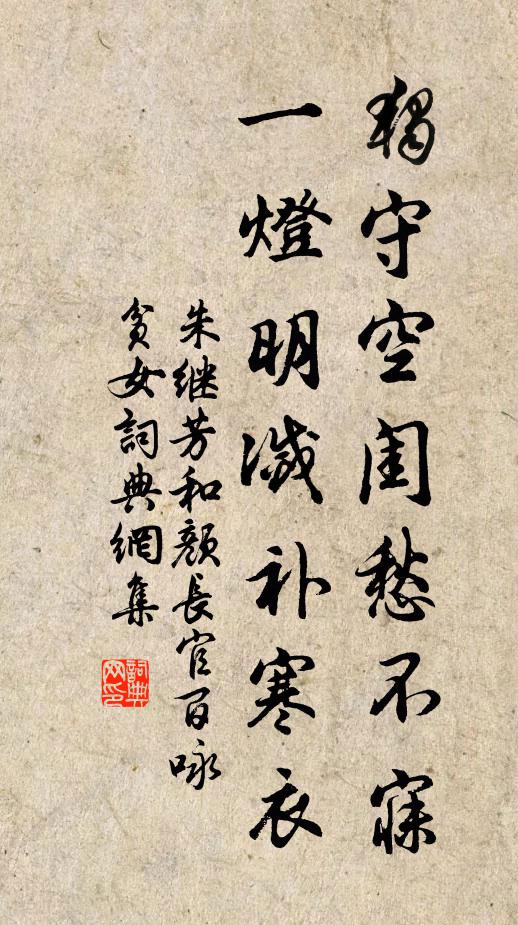 獨守空閨愁不寐
一燈明滅补寒衣
朱继芳和顏長官百咏
貧女詞典網集
詞典网印